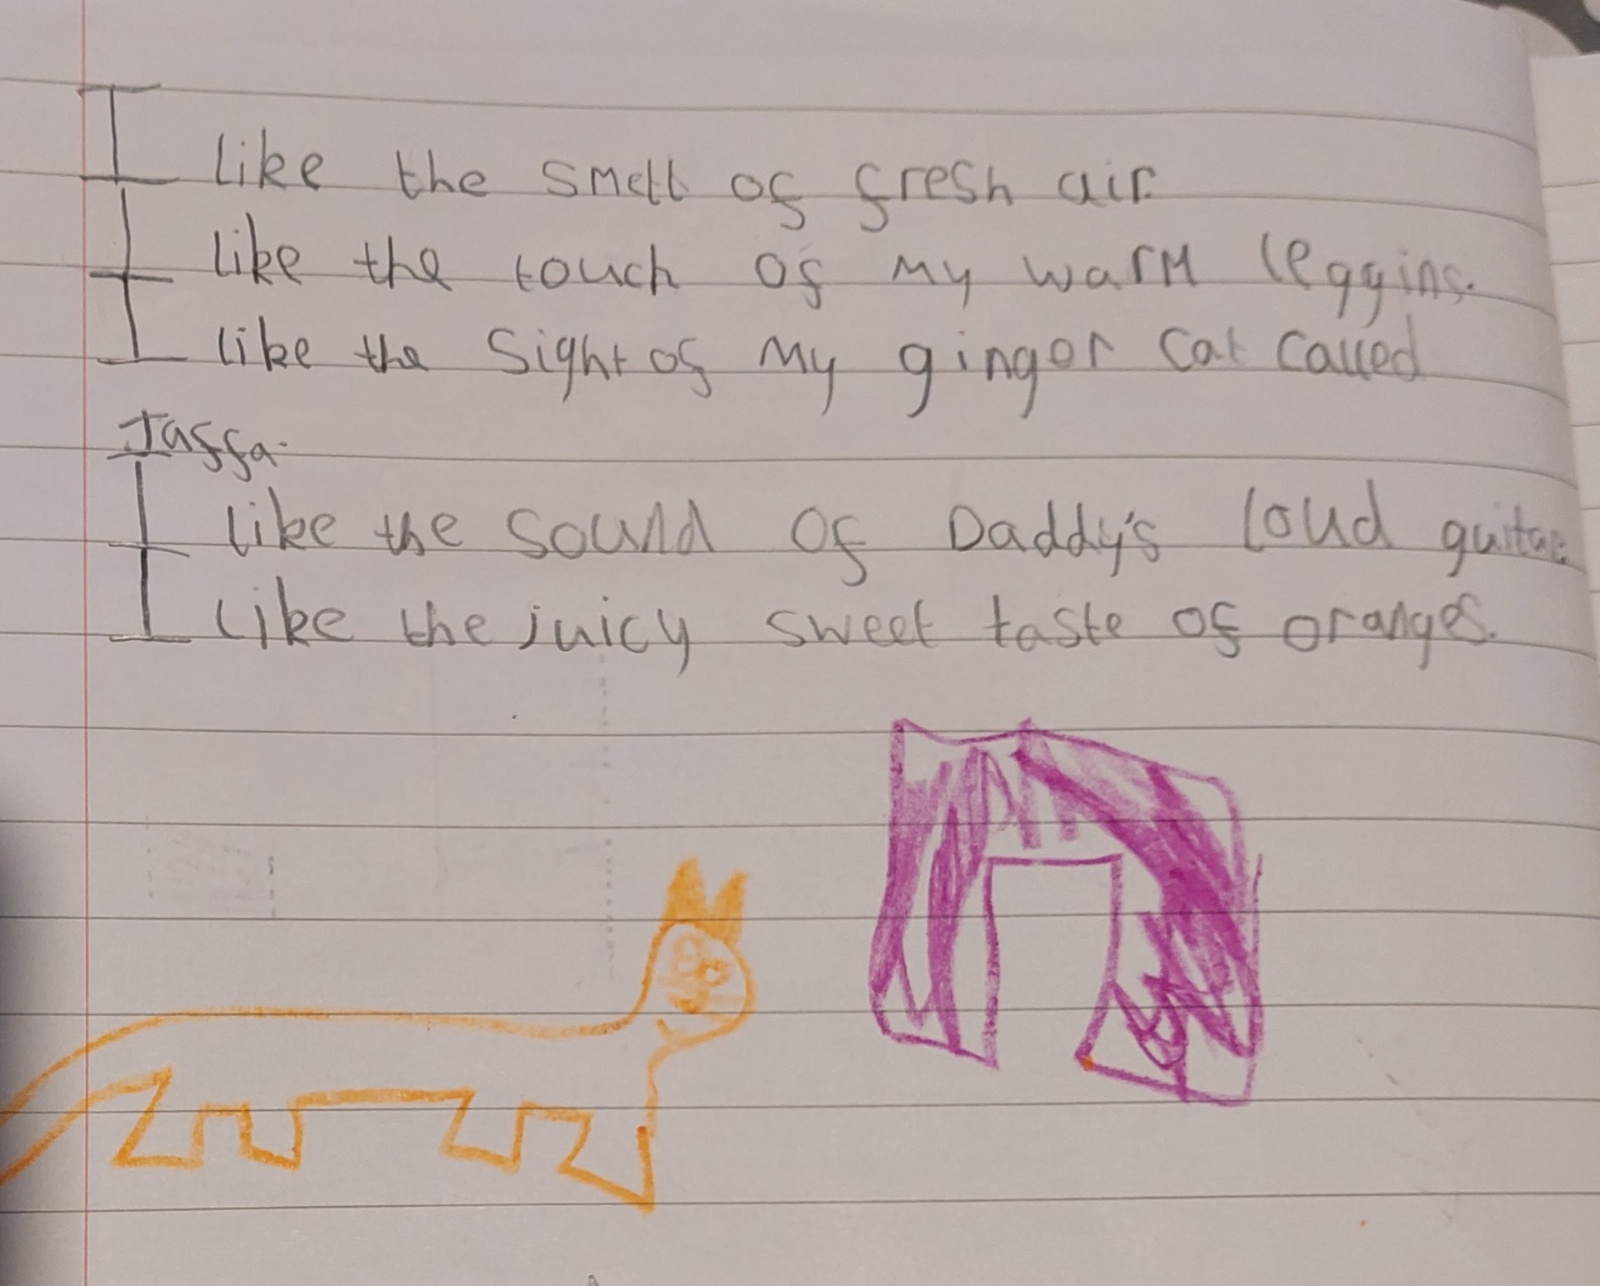 I like the smell of fresh air.
I like the touch of my warm leggins.
I like the sight of my ginger cat called
Jaffa.
I like the sound of Daddy's loud guitar.
I like the juicy sweet taste of oranges.